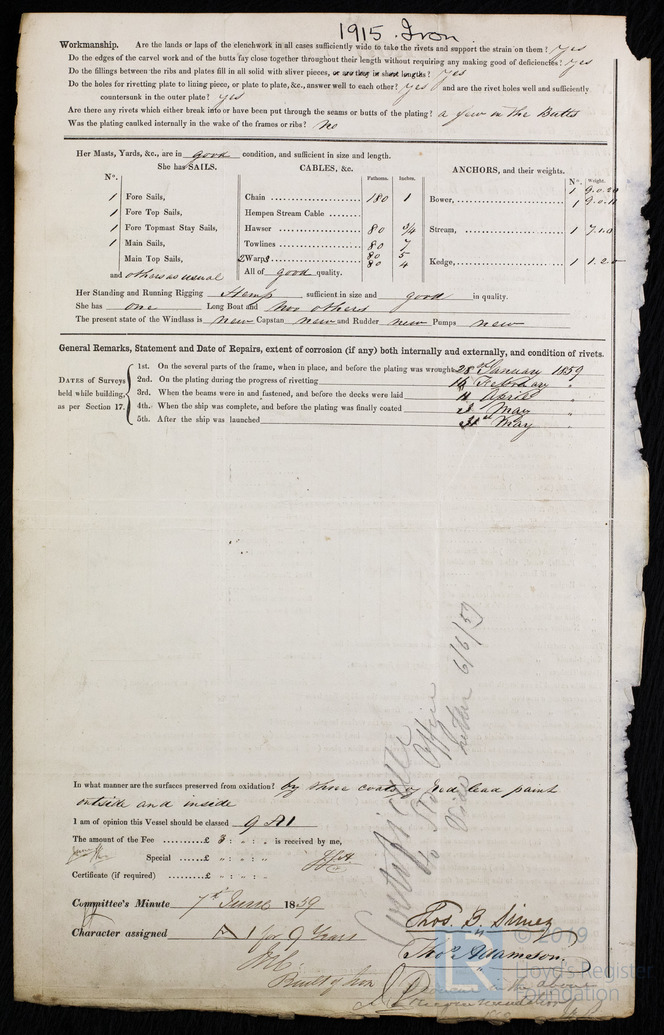 1915. Iron
Workmanship. Are the lands or laps of the clenchwork in all cases sufficiently wide to take the rivets and support the strain on them? yes
Do the edges of the carvel work and of the butts fay close together throughout their length without requiring any making good of deficiencies? yes
Do the fillings between the ribs and plates fill in all solid with sliver pieces, or are they in short lengths? yes
Do the holes for rivetting plate to lining piece, or plate to plate, &c., answer well to each other? yes and are the rivet holes well and sufficiently
countersunk in the outer plate? yes
Are there any rivets which either break into or have been put through the seams or butts of the plating? a few in the Butts
Was the plating caulked internally in the wake of the frames or ribs? no
Her Masts, Yards, &c., are in good condition, and sufficient in size and length.
She has SAILS. CABLES, &c. ANCHORS, and their weights.
N°. Fathoms. Inches. N°. Weight.
1 Fore Sails, Chain 180 1 Bower, 1 9.0.20
1 Fore Top Sails, Hempen Stream Cable 1 9.0.11
1 Fore Topmast Stay Sails, Hawser 80 3/4 Stream, 1 7.1.0
1 Main Sails, Towlines 80 7
Main Top Sails, 2 Warps 80 5 Kedge, 1 1.20
80 4
and others as usual All of good quality.
Her Standing and Running Rigging Hemp sufficient in size and good in quality.
She has one Long Boat and two others
The present state of the Windlass is new Capstan new and Rudder new Pumps new
General Remarks, Statement and Date of Repairs, extent of corrosion (if any) both internally and externally, and condition of rivets.
DATES of Surveys held while building, as per Section 17.
1st. On the several parts of the frame, when in place, and before the plating was wrought 28th January 1859
2nd. On the plating during the progress of rivetting February "
3rd. When the beams were in and fastened, and before the decks were laid April "
4th. When the ship was complete, and before the plating was finally coated May "
5th. After the ship was launched 31st May "
Certificate
to Ship Office
Vide letter 6/6/59
In what manner are the surfaces preserved from oxidation? by three coats of red lead paint
outside and inside
I am of opinion this Vessel should be classed 9 A1
The amount of the Fee .......... £ 3 : „ : „ is received by me,
Special ...... £ „ : „ : „
Certificate (if required) ...... £ „ : „ : „
Committee's Minute 7th June 1859
Character assigned A 1 for 9 Years
Built of Iron
Thos. B. Simey
Thos Adamson
in the above
recommendation
© 2019
Lloyd's Register
Foundation
LR